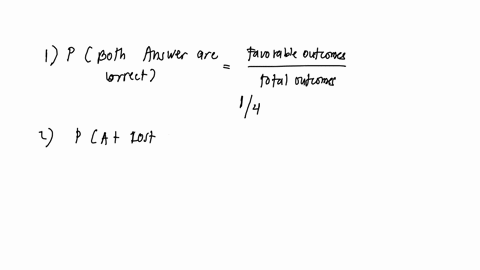 1) P (Both Answer are correct) = favorable outcomes / total outcomes
1/4
2) P (At lost